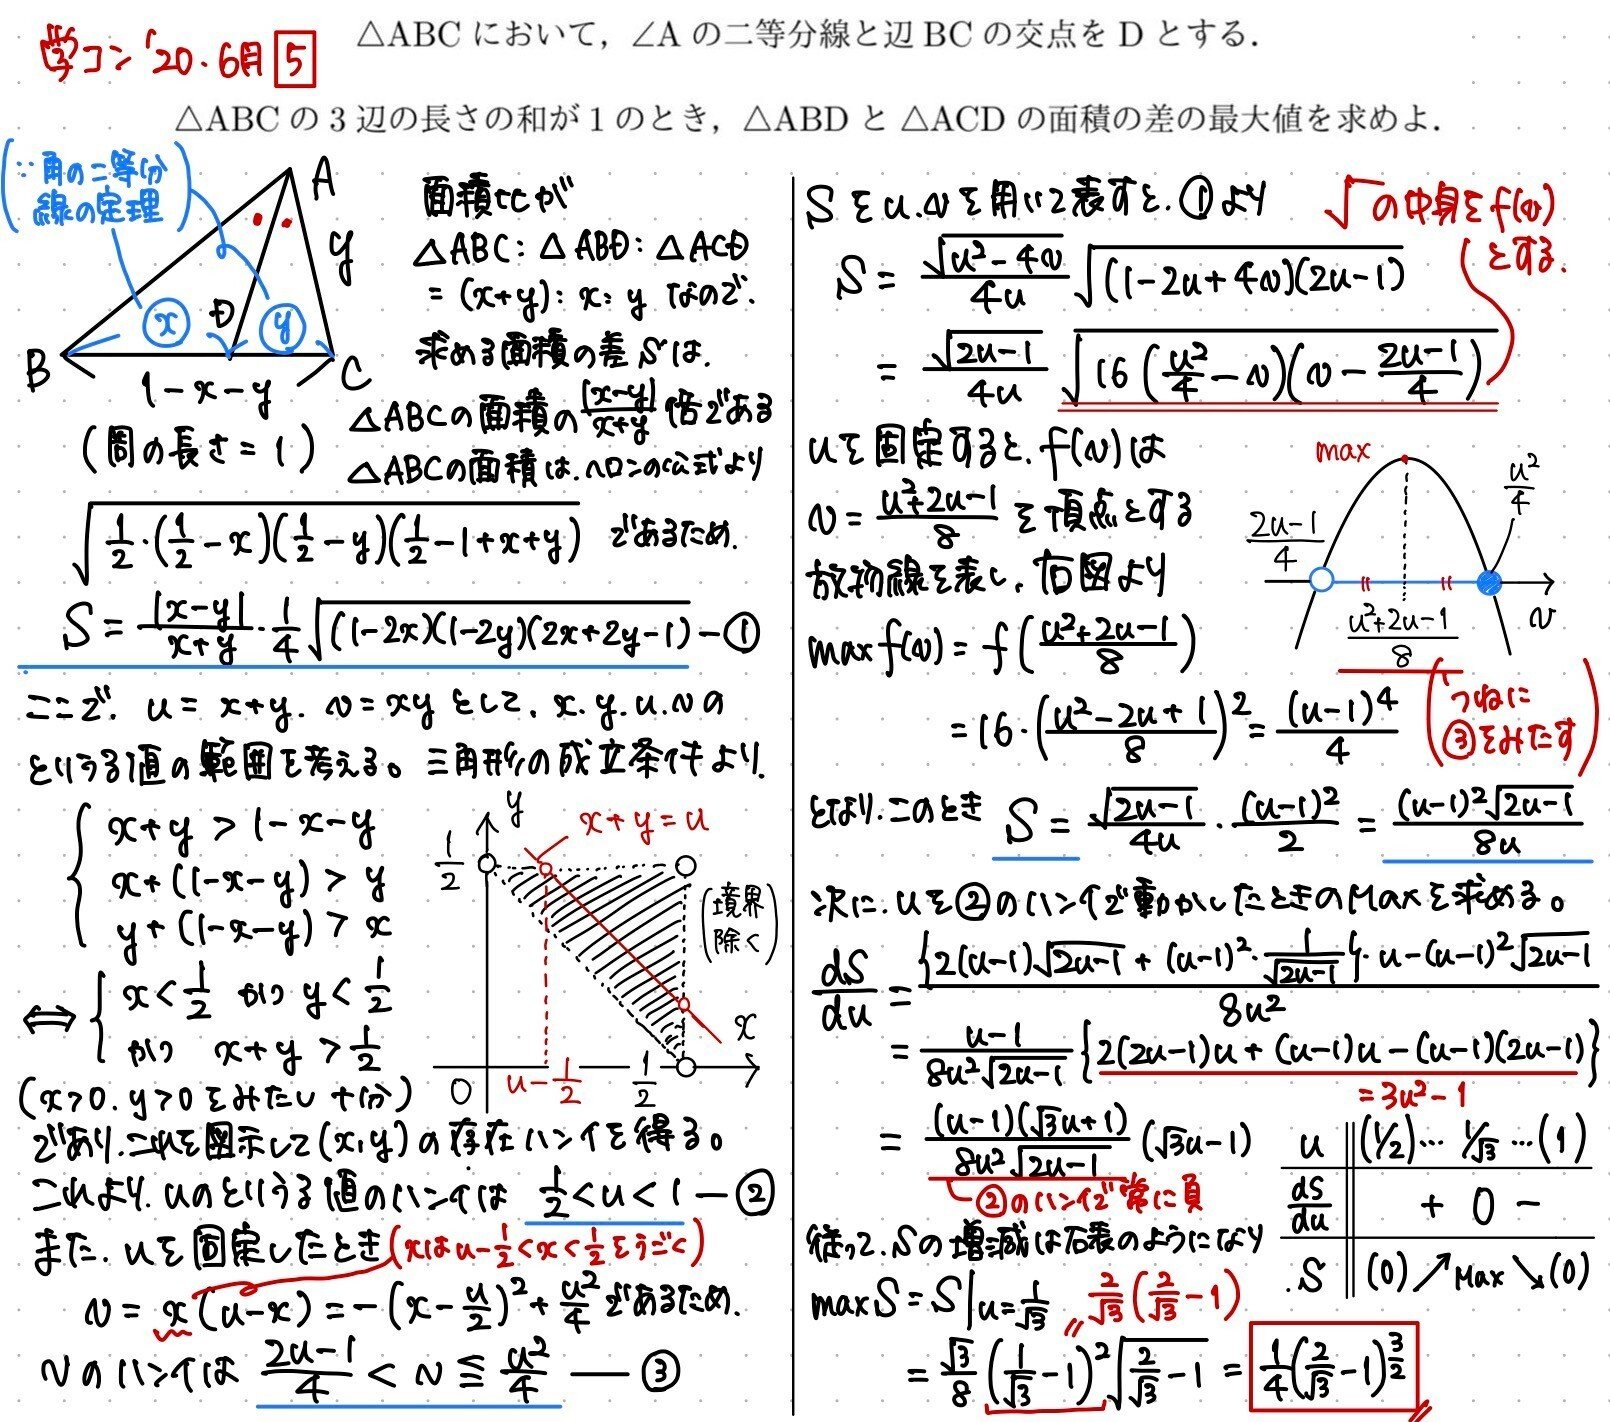 学コン '20.6月 5
△ABC において，∠A の二等分線と辺 BC の交点を D とする．
△ABC の 3 辺の長さの和が 1 のとき，△ABD と △ACD の面積の差の最大値を求めよ．
(∵角の二等分
線の定理)
A
y
x
D
y
B
C
1-x-y
(周の長さ=1)
面積比が
△ABC:△ABD:△ACD
=(x+y):x:y なので.
求める面積の差Sは.
△ABCの面積の|x-y|/(x+y)倍である
△ABCの面積は.ヘロンの公式より
√(1/2・(1/2-x)(1/2-y)(1/2-1+x+y)) であるため.
S = |x-y|/(x+y)・1/4√((1-2x)(1-2y)(2x+2y-1)) ー①
ここで. u=x+y. v=xy として. x.y.u.vの
とりうる値の範囲を考える。三角形の成立条件より.
{ x+y > 1-x-y
x+(1-x-y) > y
y+(1-x-y) > x
⇔ { x<1/2 かつ y<1/2
かつ x+y>1/2
(x>0.y>0をみたし十分)
y
x+y=u
1/2
(境界
除く)
x
O
u-1/2
1/2
であり.これを図示して(x,y)の存在ハンイを得る。
これより.uのとりうる値のハンイは 1/2<u<1 ー②
また.uを固定したとき(xはu-1/2<x<1/2をうごく)
v = x(u-x) = -(x-u/2)²+u²/4 であるため.
vのハンイは (2u-1)/4 < v ≦ u²/4 ー③
Sをu.vを用いて表すと.①より
√の中身をf(v)
とする.
S = √(u²-4v)/4u √((1-2u+4v)(2u-1))
= √(2u-1)/4u √(16(u²/4-v)(v-(2u-1)/4))
uを固定すると.f(v)は
v=(u²+2u-1)/8 を頂点とする
放物線を表し.右図より
max
u²/4
(2u-1)/4
v
(u²+2u-1)/8
max f(v) = f((u²+2u-1)/8)
(つねに
③をみたす)
= 16・((u²-2u+1)/8)² = (u-1)⁴/4
となり.このとき S = √(2u-1)/4u・(u-1)²/2 = (u-1)²√(2u-1)/8u
次に.uを②のハンイで動かしたときのMaxを求める。
dS/du = ({2(u-1)√(2u-1)+(u-1)²・1/√(2u-1)}・u-(u-1)²√(2u-1))/8u²
= (u-1)/(8u²√(2u-1)) {2(2u-1)u+(u-1)u-(u-1)(2u-1)}
=3u²-1
= (u-1)(√3u+1)/(8u²√(2u-1)) (√3u-1)
②のハンイで常に負
u (1/2)… 1/√3 …(1)
dS/du + 0 -
S (0) ↗ Max ↘ (0)
従って.Sの増減は右表のようになり
max S = S|u=1/√3
2/√3(2/√3-1)
= √3/8 (1/√3-1)²√(2/√3-1) = 1/4(2/√3-1)^(3/2)